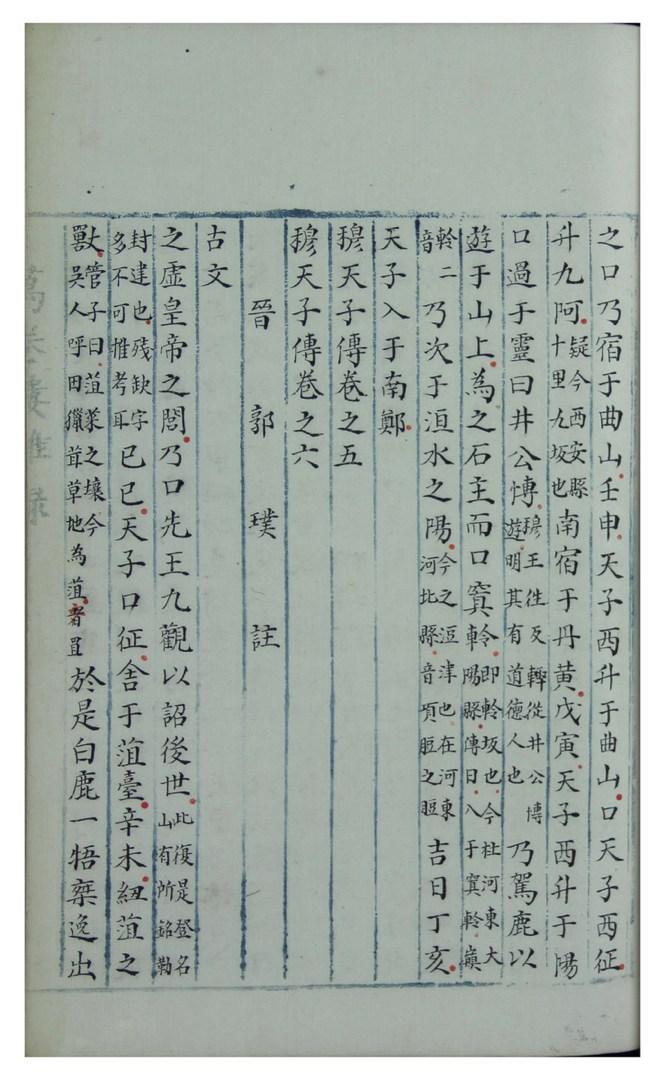 之口乃宿于曲山壬申天子西升于曲山口天子西征
升九阿疑今西安縣十里九坂也南宿于丹黃戊寅天子西升于陽
口過于靈曰井公愽穆王徃反輙從井公博遊明其有道德人也乃駕鹿以
遊于山上為之石主而口窴軨即軨坂也今杜河東大陽縣傳曰入于窴軨巔
軨二音乃次于洹水之陽今之逗津也在河東河北縣音項脰之脰吉日丁亥
天子入于南鄭
穆天子傳卷之五
穆天子傳卷之六
晉郭璞註
古文
之虛皇帝之閭乃口先王九觀以詔後世此復是登名山有所銘勒
封建也殘缺字多不可推考耳已巳天子口征舍于菹臺辛未紐菹之
獸管子曰菹菜之壤今吳人呼田獵茸草地為菹音罝於是白鹿一牾椉逸出